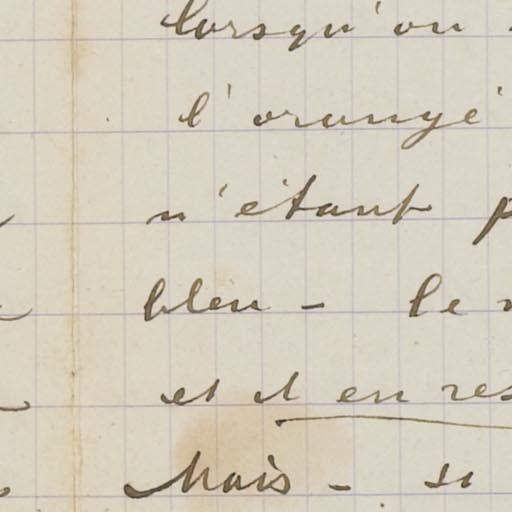 lorsqu'on
l'orangé
n'étant p
bleu - le
et il en res
Mais - si